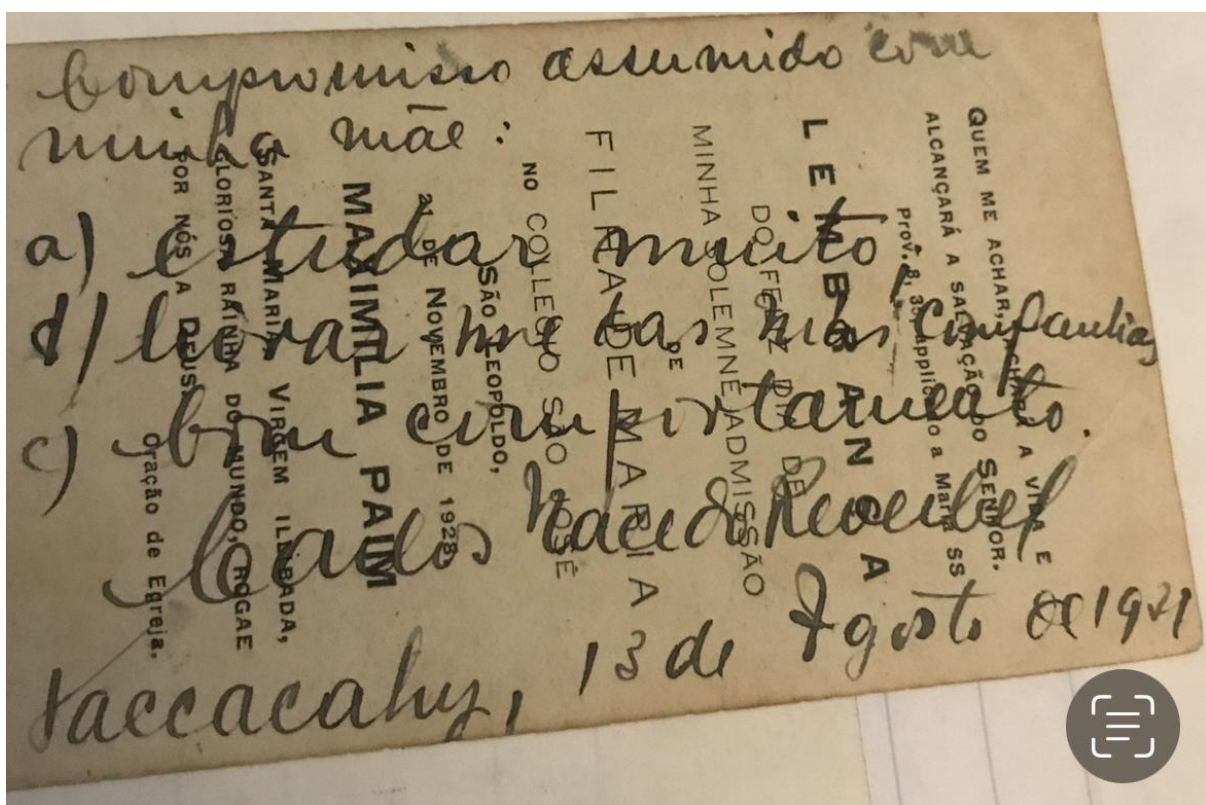 Compromisso assumido com
minha mãe:
a) estudar muito,
d) livrar me das más companhias
c) bom comportamento.
Carlos Macedo
13 de Agosto de 19
QUEM ME ACHAR, ACHARÁ A VIDA E
ALCANÇARÁ A SALVAÇÃO DO SENHOR.
Prov. 8, 35. applicado a Maria SS
LEMBRANÇA
DO FELIZ DIA DE
MINHA SOLEMNE ADMISSÃO
DE
FILHA DE MARIA
NO COLLEGIO SÃO JOSÉ
SÃO LEOPOLDO,
21 DE NOVEMBRO DE 1928
MAXIMILIA PAIM
SANTA MARIA, VIRGEM ILIBADA,
GLORIOSA RAINHA DO MUNDO, ROGAE
POR NÓS A DEUS!
Oração de Egreja.